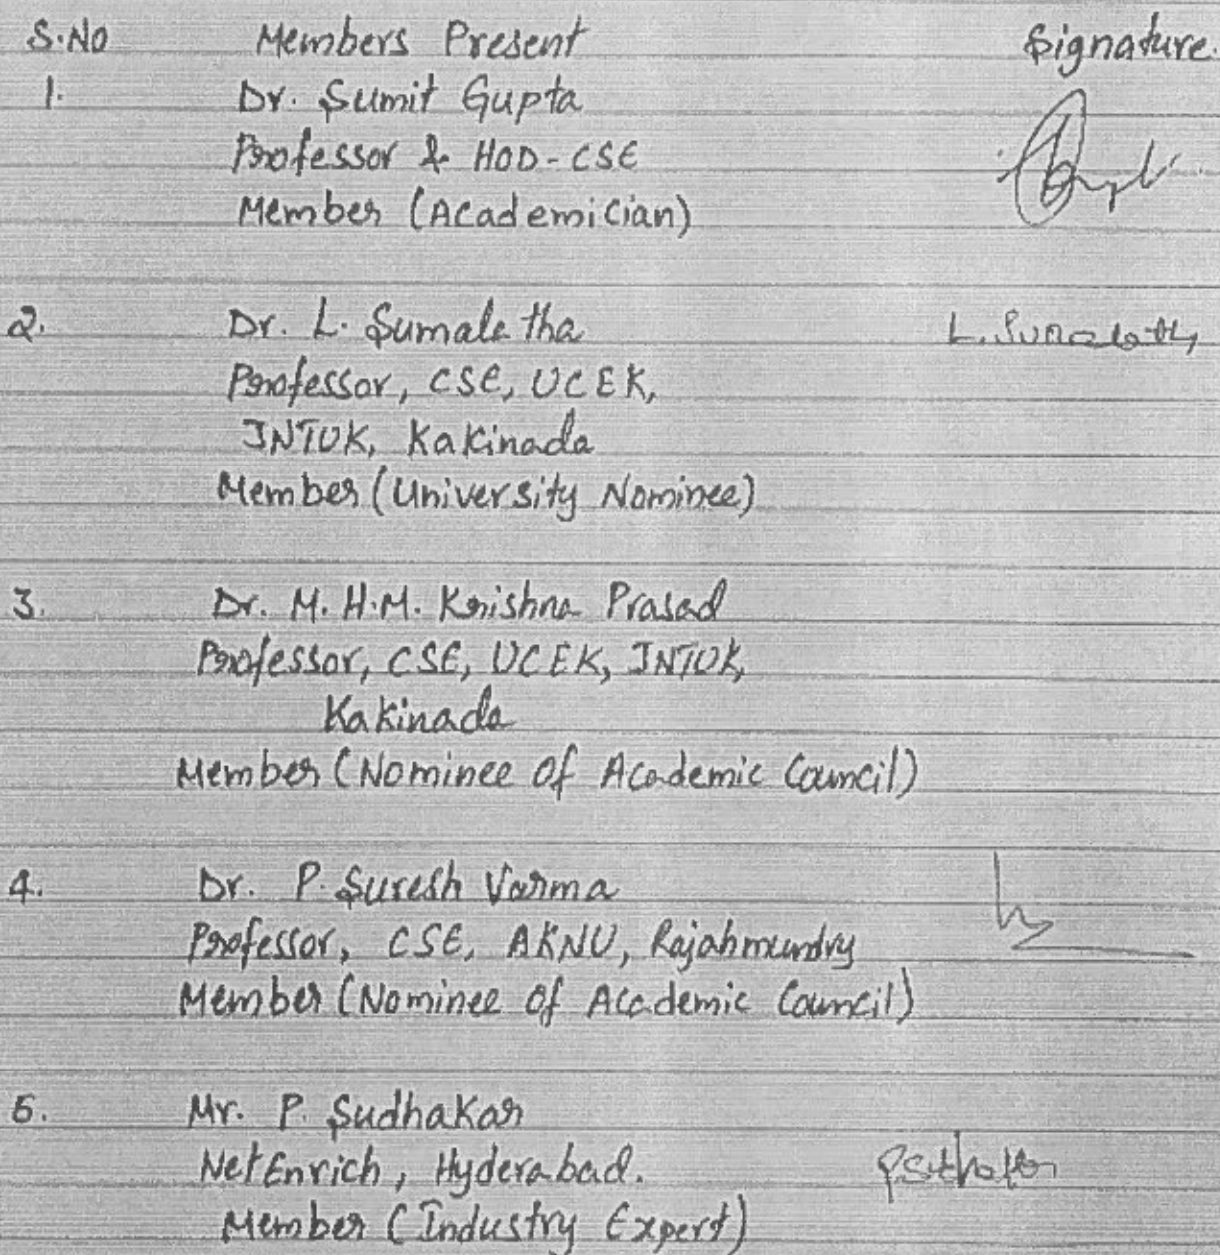 S.No Members Present Signature.
1. Dr. Sumit Gupta
Professor & HOD-CSE
Member (Academician)
2. Dr. L. Sumalatha L. Sumalatha
Professor, CSE, UCEK,
JNTUK, Kakinada
Member (University Nominee)
3. Dr. M. H.M. Krishna Prasad
Professor, CSE, UCEK, JNTUK,
Kakinada
Member (Nominee of Academic Council)
4. Dr. P. Suresh Varma
Professor, CSE, AKNU, Rajahmundry
Member (Nominee of Academic Council)
5. Mr. P. Sudhakar
NetEnrich, Hyderabad.
Member (Industry Expert)